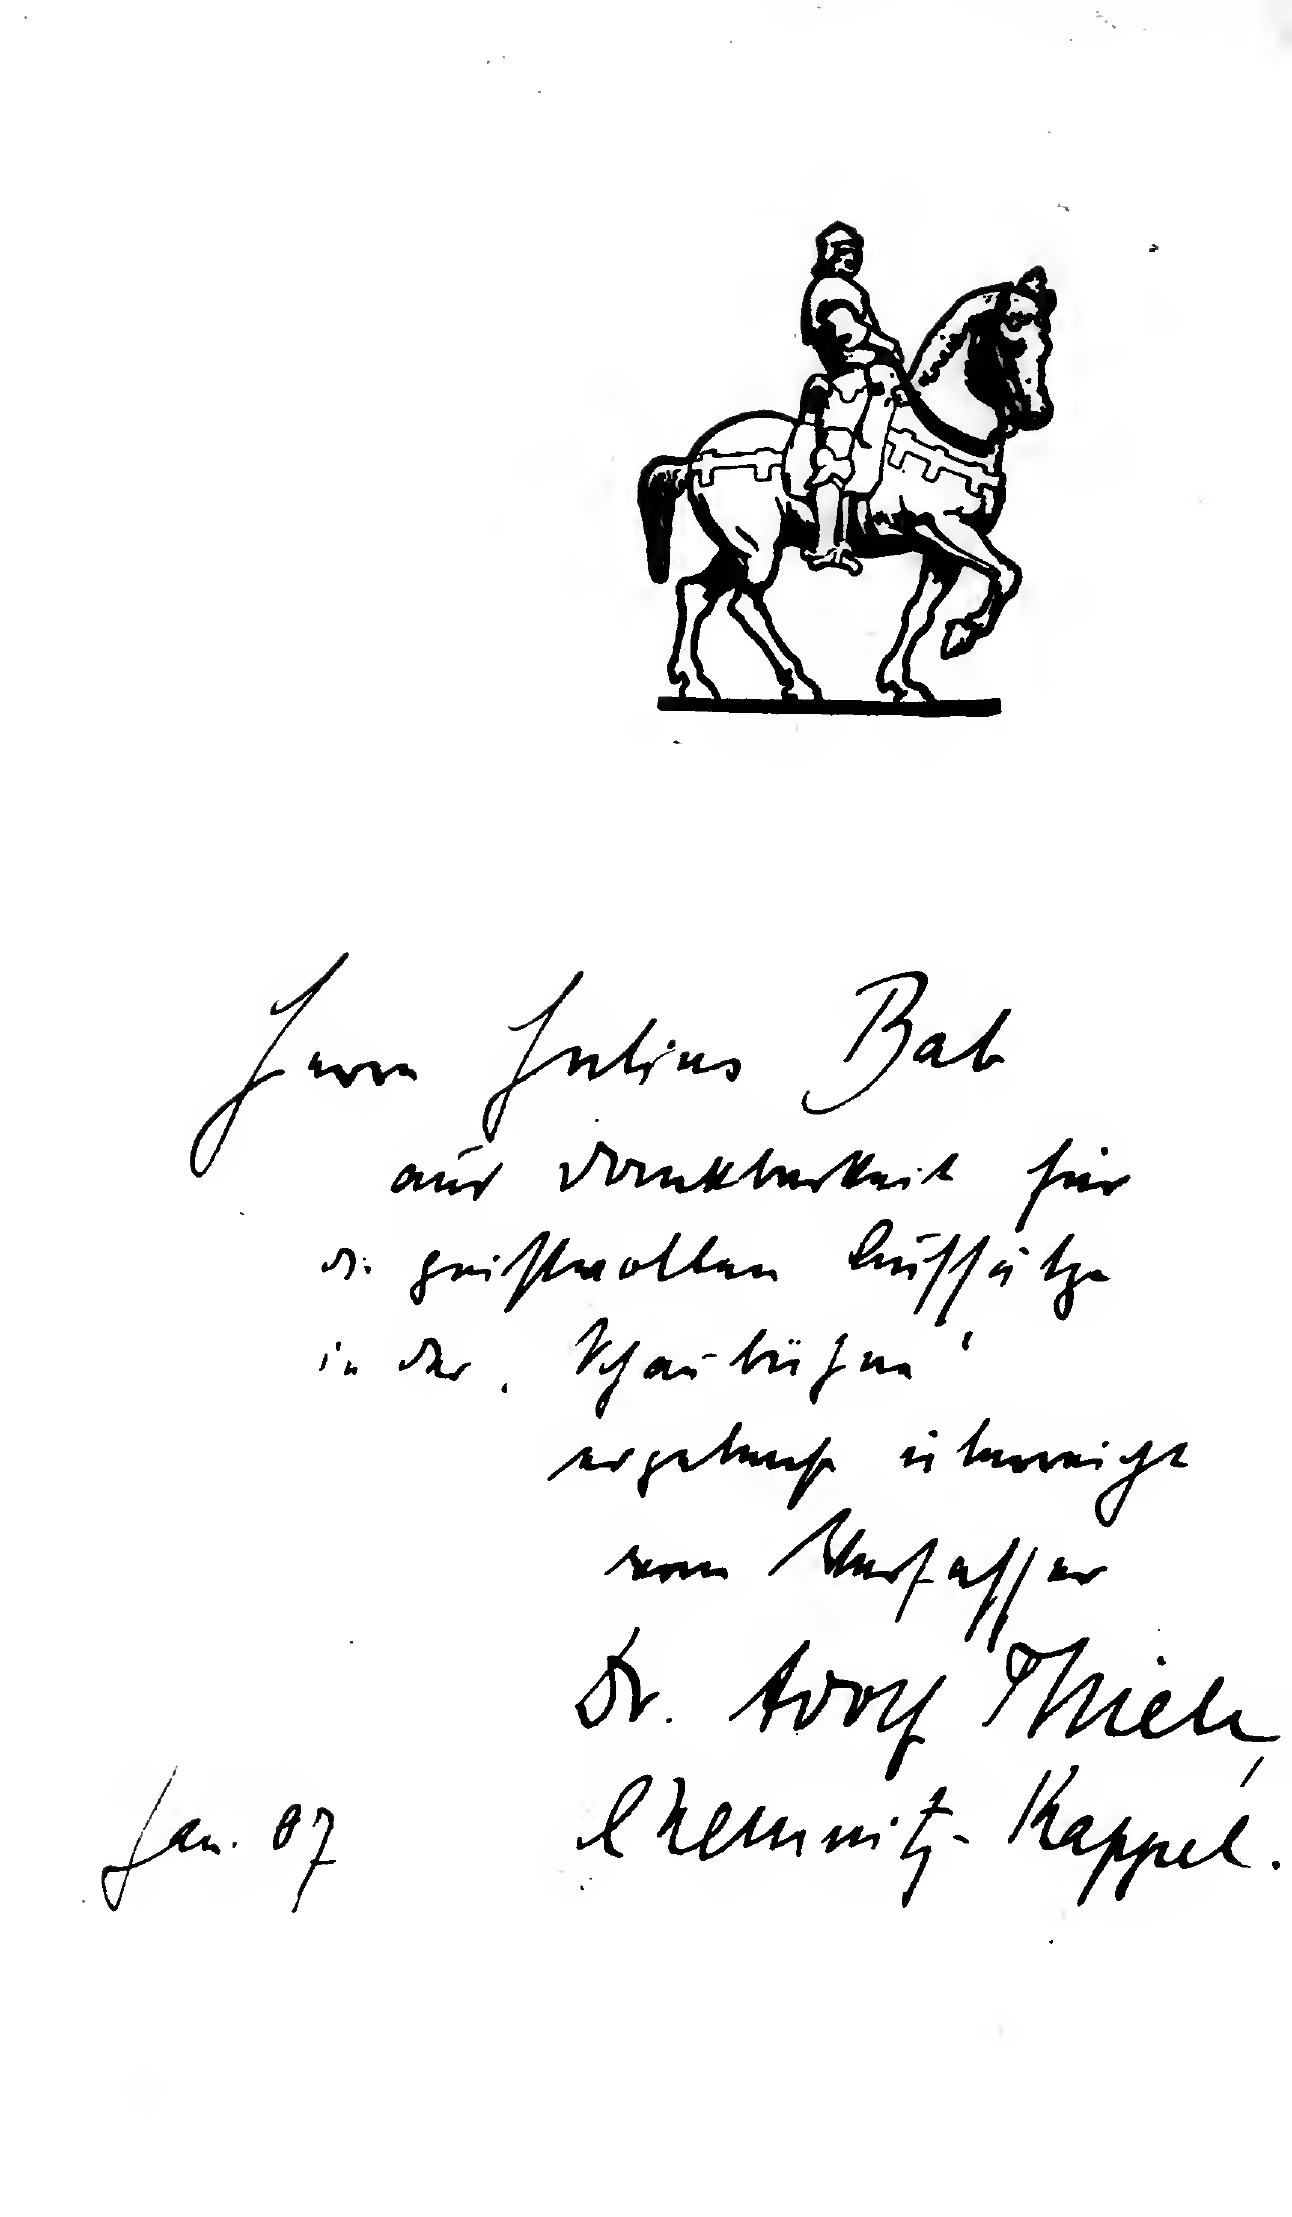 Herrn Julius Bab
aus Dankbarkeit für
die geistvollen Aufsätze
in der ‚Schaubühne‘
ergebenst überreicht
vom Verfasser
Dr. Adolf Thiele,
Chemnitz-Kappel.
Jan. 07